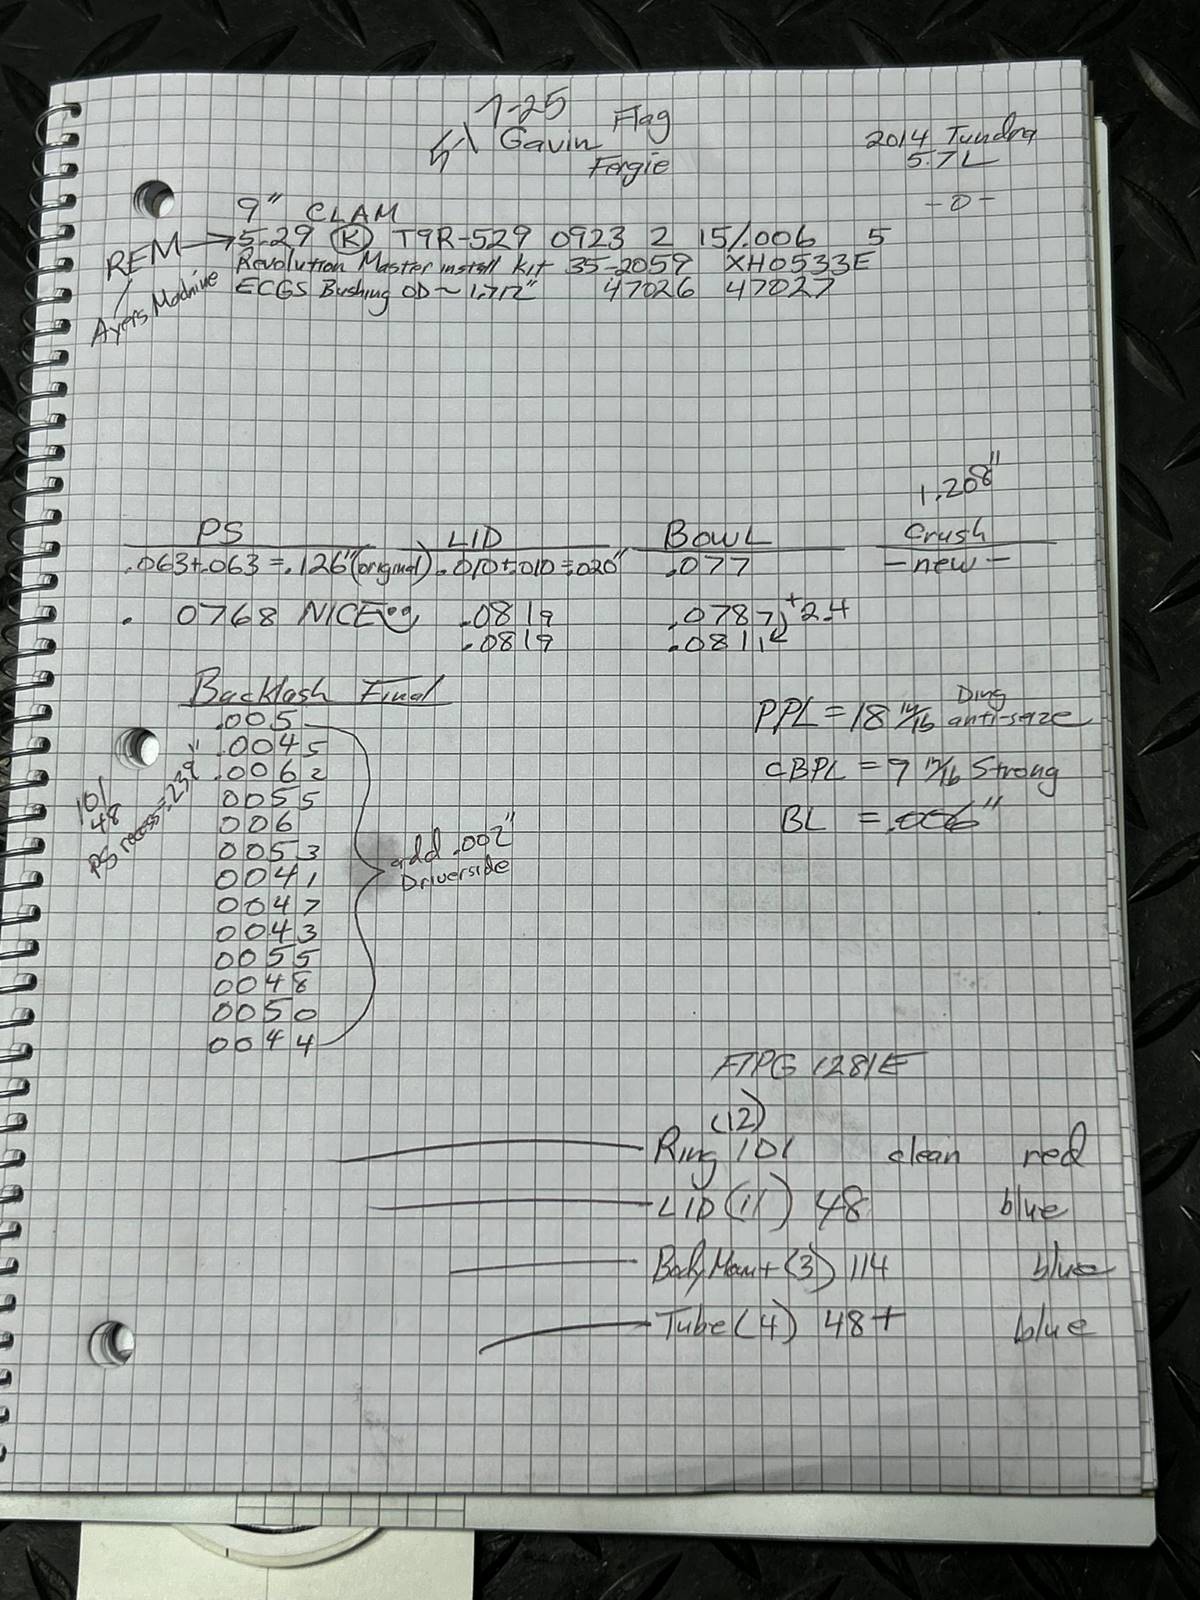 7-25
Gavin Flag
Fergie
2014 Tundra
5.7L
-0-
9" CLAM
REM → 5-29 (K) T9R-529 0923 2 15/.006 5
Revolution Master install kit 35-2059 XH0533E
Ayers Machine
ECGS Bushing OD ~ 1.712" 47026 47027
1.208"
PS LID Bowl Crush
.063+.063=.126"(original) .010+.010=.020" .077 -new-
.0768 NICE .0819 .0787 +2.4
.0819 .0811
Backlash Final
.005
.0045
.0062
0055
006
0053
0041
0047
0043
0055
0048
0050
0044
add .002"
Driverside
101/
48
PS recess=.239"
PPL = 18 14/16 Ding anti-seize
CBPL = 9 12/16 Strong
BL = .006"
FTPG 1281E
(12)
Ring 101 clean red
LID (11) 48 blue
Body Mount (3) 114 blue
Tube (4) 48+ blue